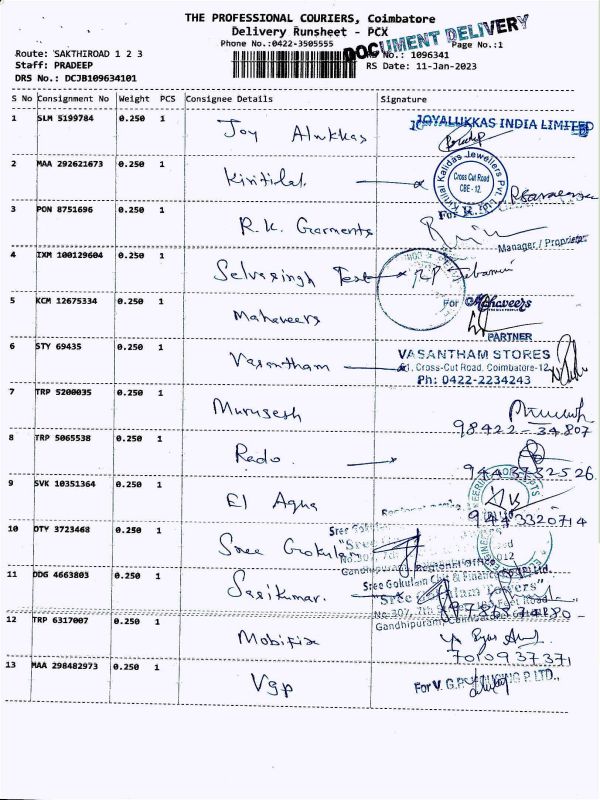 THE PROFESSIONAL COURIERS, Coimbatore
Delivery Runsheet - PCX
Phone No.:0422-3505555
DOCUMENT DELIVERY
Page No.:1
Route: SAKTHIROAD 1 2 3
No.: 1096341
Staff: PRADEEP
RS Date: 11-Jan-2023
DRS No.: DCJB109634101
S No Consignment No Weight PCS Consignee Details Signature
1 SLM 5199784 0.250 1 Joy Alukkas JOYALUKKAS INDIA LIMITED
2 MAA 292621673 0.250 1 Kirtilal
Kirtilal Kalidas Jewellers Pvt. Ltd.
Cross Cut Road
CBE - 12.
3 PON 8751696 0.250 1 R.K. Garments
For R.
Manager / Proprietor
4 IXM 100129604 0.250 1 Selvasingh Tex
5 KCM 12675334 0.250 1 Mahaveers
For Mahaveers
PARTNER
6 STY 69435 0.250 1 Vasantham
VASANTHAM STORES
Cross-Cut Road, Coimbatore-12
Ph: 0422-2234243
7 TRP 5200035 0.250 1 Murugesh
98422-34807
8 TRP 5065538 0.250 1 Redo
9443732526
9 SVK 10351364 0.250 1 El Aqua
9443320714
10 OTY 3723468 0.250 1 Sree Gokulam
Sree Gokulam
"Sree
Gandhipuram,
012
Regional Office
11 DDG 4663803 0.250 1 Sasikumar
Sree Gokulam Chit & Finance Co (P) Ltd.
"Sree Gokulam Towers"
No.307, 7th
Road
Gandhipuram, Coimbatore
12 TRP 6317007 0.250 1 Mobifix
7010937371
13 MAA 298482973 0.250 1 Vgp
For V. G.P. HOUSING P. LTD.,